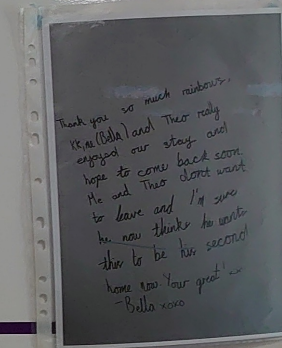 Thank you so much rainbows,
Me (Bella) and Theo realy
enjoyed our stay and
hope to come back soon.
Me and Theo dont want
to leave and I'm sure
he now thinks he wants
this to be his second
home now. Your great! xx
- Bella xoxo